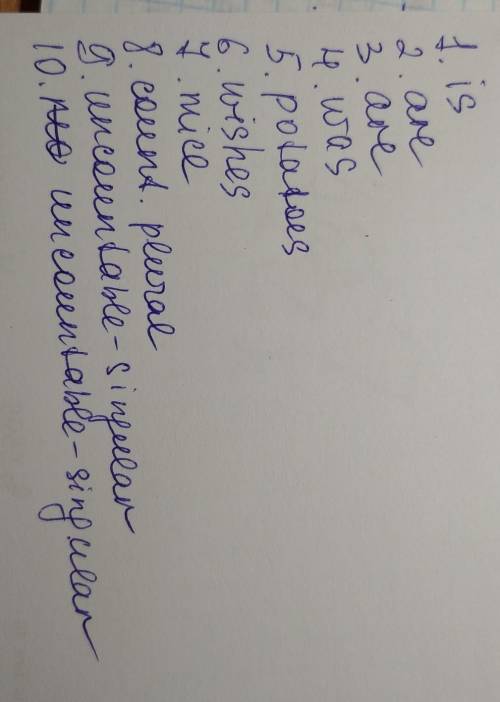 1. is
2. are
3. are
4. was
5. potatoes
6. wishes
7. mice
8. count. plural
9. uncountable - singular
10. uncountable - singular